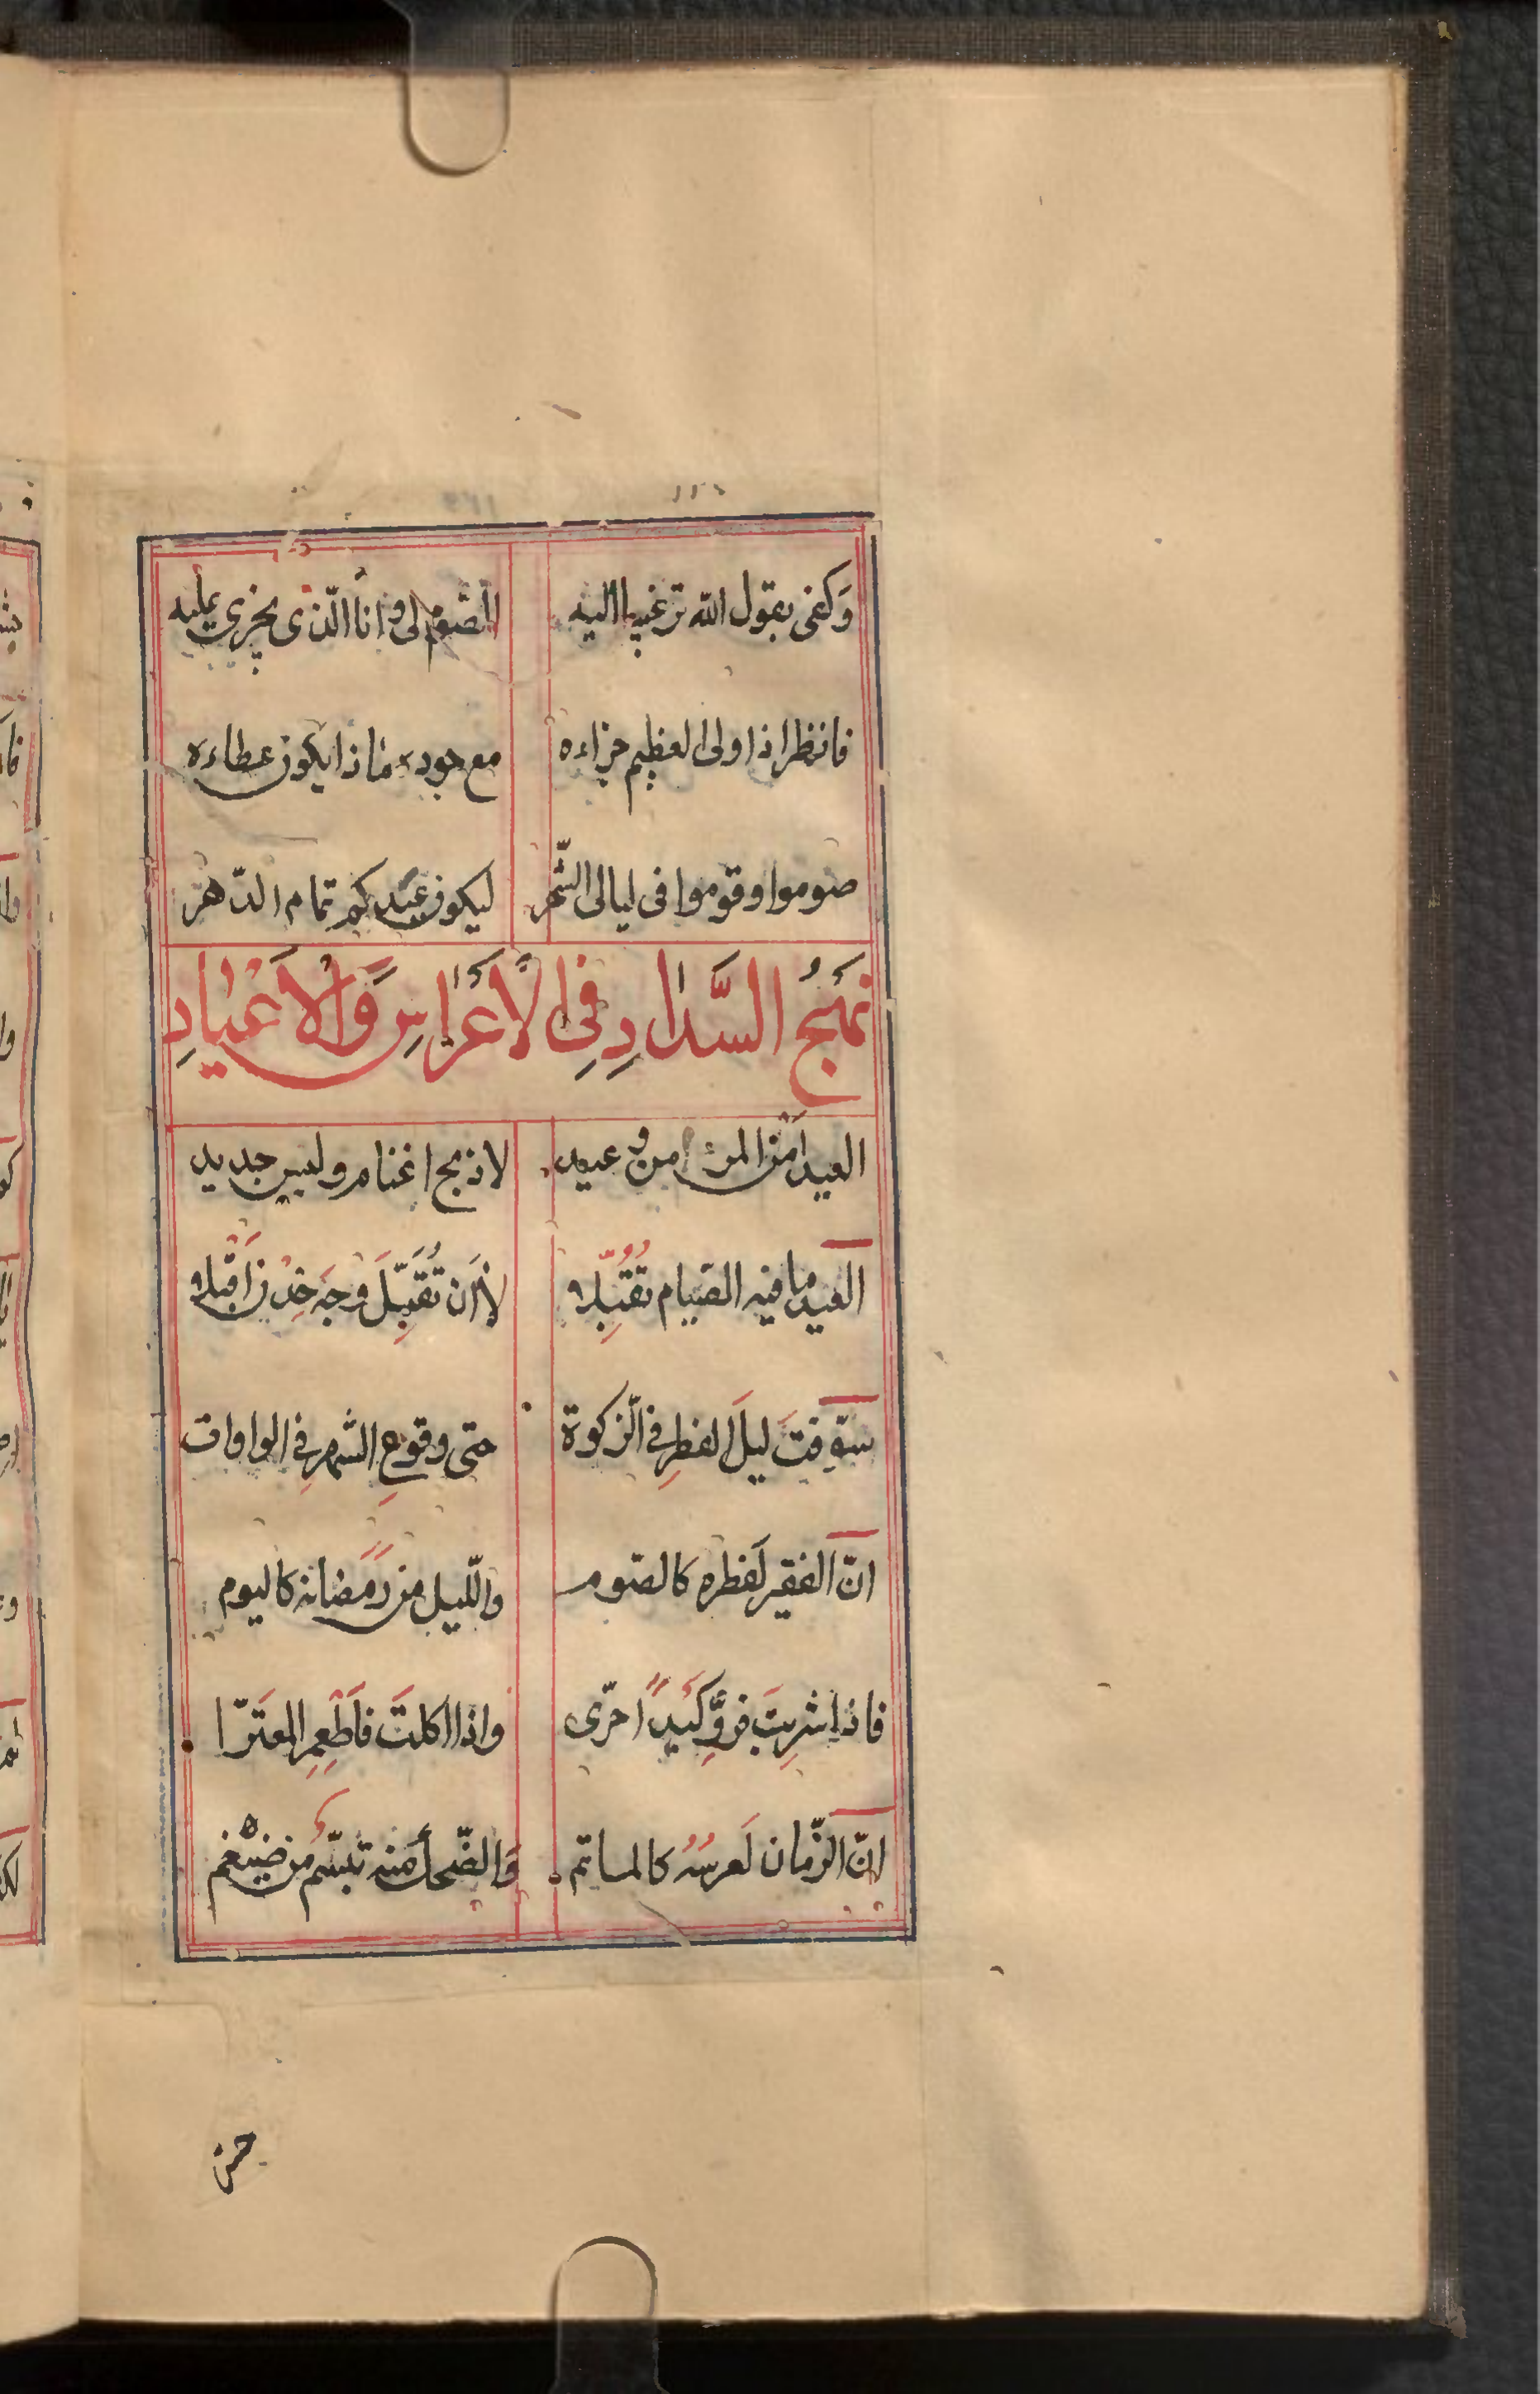 وَكفى بقول الله ترغيبا اليه الصّوم لى وانا الّذى يجزى عليه
فانظر اذا ولى العظيم جزاءه مع جوده ماذا يكون عطاءه
صوموا وقوموا فى ليالى الشّهر ليكون عيدكم تمام الدّهر
نَهْجُ السَّدادِ فِى الأَعْراسِ وَالأَعْيادِ
العيد امن المرء من وعيد لا ذبح اغنام ولبس جديد
العيد ما فيه الصّيام تقبّله لا أن تُقَبِّلَ وجهَ خِدْنٍ
سوّفتَ ليلَ الفطرِ فى الزّكوة حتى وقوعِ الشهرِ فى الواوات
انّ الفقير لَفطره كالصّوم والّليل من رَمضانه كاليوم
فاذا شربتَ فروِّ كَبِدًا حرّى واذا اكلتَ فاَطْعِمِ المعترّا
انّ الزّمان لَعرسُهُ كالماتم وَالضّحك منه تبسّمُ من ضيغم